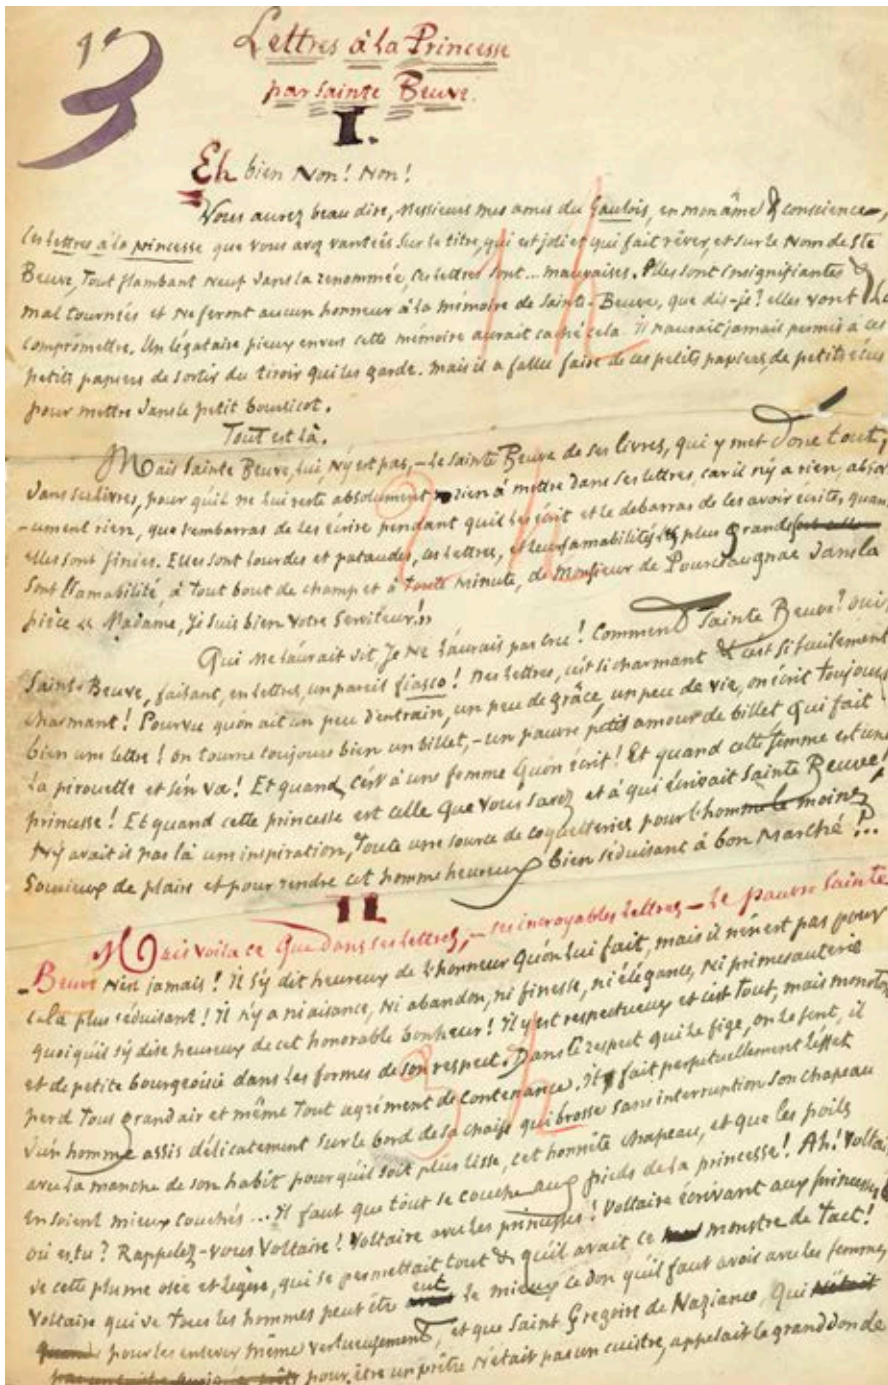 13
Lettres à la Princesse
par Sainte Beuve.
I.
Eh bien Non! Non!
Vous aurez beau dire, Messieurs mes amis du Gaulois, en mon âme & conscience,
les lettres à la princesse que vous avez vantées sur le titre, qui est joli et qui fait rêver, et sur le Nom de Ste
Beuve, tout flambant neuf dans la renommée, ces lettres sont... mauvaises. Elles sont insignifiantes &
mal tournées et ne feront aucun honneur à la mémoire de Sainte-Beuve, que dis-je? elles vont la
compromettre. Un légataire pieux envers cette mémoire aurait caché cela. Il n'aurait jamais permis à ces
petits papiers de sortir du tiroir qui les garde. mais il a fallu faire de ces petits papiers, de petits écus
pour mettre dans le petit boursicot.
Tout est là.
Mais Sainte Beuve, lui, n'y est pas, - le Sainte Beuve de ses livres, qui y met donc tout,
dans ses livres, pour qu'il ne lui reste absolument rien à mettre dans ses lettres, car il n'y a rien, absol
-ument rien, que l'embarras de les écrire pendant qu'il les écrit et le débarras de les avoir écrites, quan
elles sont finies. Elles sont lourdes et pataudes, ces lettres, et leurs amabilités les plus grandes
sont l'amabilité, à tout bout de champ et à toute minute, de Monsieur de Pourceaugnac dans la
pièce « Madame, je suis bien votre serviteur! »
Qui me l'aurait dit, je ne l'aurais pas cru! Comment Sainte Beuve? oui,
Sainte-Beuve, faisant, en lettres, un pareil fiasco! Des lettres, c'est si charmant & c'est si facilement
charmant! Pourvu qu'on ait un peu d'entrain, un peu de grâce, un peu de vie, on écrit toujours
bien une lettre! on tourne toujours bien un billet, - un pauvre petit amour de billet qui fait
la pirouette et s'en va! Et quand c'est à une femme qu'on écrit! Et quand cette femme est une
princesse! Et quand cette princesse est celle que vous savez et à qui écrivait Sainte Beuve!
N'y avait il pas là une inspiration, toute une source de coquetteries pour l'homme le moins
soucieux de plaire et pour rendre cet homme heureux bien séduisant à bon marché!..
II
Mais voilà ce que dans ses lettres, - ses incroyables lettres - le pauvre Sainte
-Beuve n'est jamais! Il s'y dit heureux de l'honneur qu'on lui fait, mais il n'en est pas pour
cela plus séduisant! Il n'y a ni aisance, ni abandon, ni finesse, ni élégance, ni primesauterie
quoiqu'il s'y dise heureux de cet honorable bonheur! Il y est respectueux et c'est tout, mais monoton
et de petite bourgeoisie dans les formes de son respect. Dans le respect qui le fige, on le sent, il
perd tous grand air et même tout agrément de contenance. Il fait perpétuellement l'effet
d'un homme assis délicatement sur le bord de sa chaise qui brosse sans interruption son chapeau
avec la manche de son habit pour qu'il soit plus lisse, cet honnête chapeau, et que les poils
en soient mieux couchés... Il faut que tout se couche aux pieds de la princesse! Ah! Voltai
où es tu? Rappelez-vous Voltaire! Voltaire avec les princesses! Voltaire écrivant aux princesses
de cette plume osée et légère, qui se permettait tout & qu'il avait, ce monstre de tact!
Voltaire qui de tous les hommes peut être eut le mieux ce don qu'il faut avoir avec les femmes
pour les enlever même vertueusement, et que Saint Grégoire de Nazianze, qui
pour être un prêtre n'était pas un cuistre, appelait le grand don de